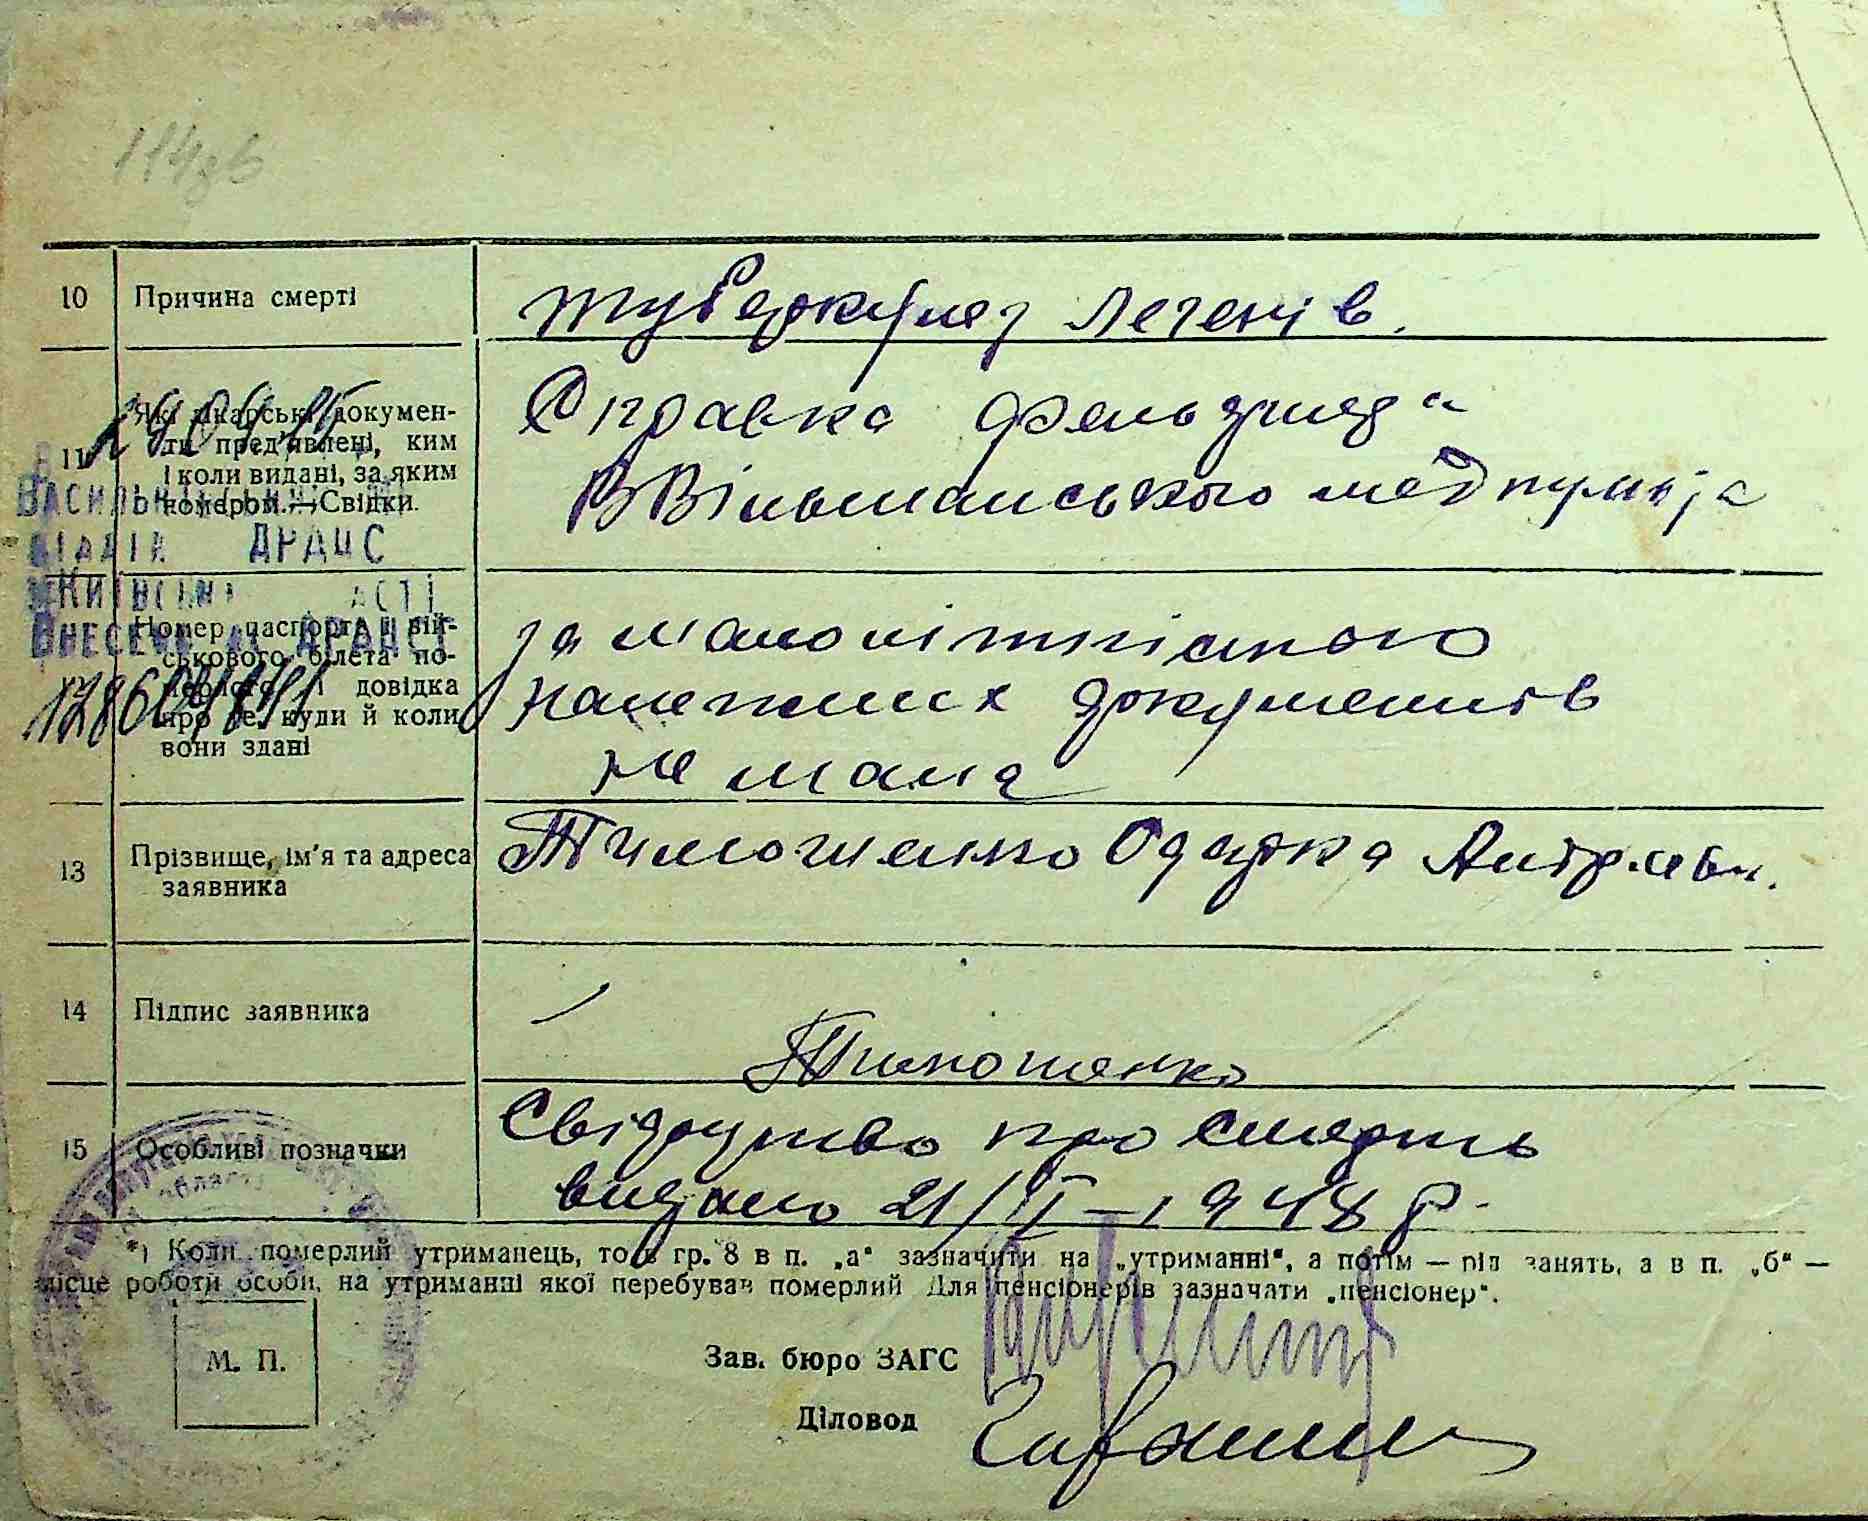 114зв
10 Причина смерті
туберкульоз легенів.
11 Які лікарські докумен-
ти пред'явлені, ким
і коли видані, за яким
номером. — Свідки.
Справка фельдшера
медпункта
ДРАЦС
Номер паспорта і вій-
ськового білета по-
мерлого і довідка
про те, куди й коли
вони здані
за малолітністю
належних документів
не мала
13 Прізвище, ім'я та адреса
заявника
Тимошенко Одарка
14 Підпис заявника
Тимошенко
15 Особливі позначки
Свідоцтво про смерть
видано 21/II-1948 р.
*) Коли померлий утриманець, то в гр. 8 в п. „а“ зазначити на „утриманні“, а потім — рід занять, а в п. „б“ —
місце роботи особи, на утриманні якої перебував померлий Для пенсіонерів зазначати „пенсіонер“.
М. П.
Зав. бюро ЗАГС
Діловод